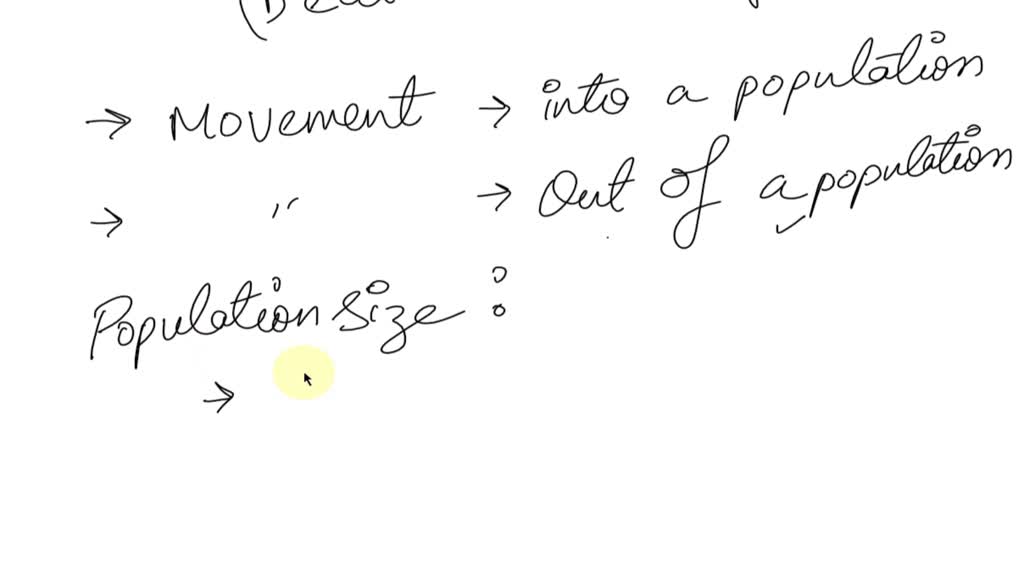 → Movement → into a population
→ " → Out of a population
Population size :
→